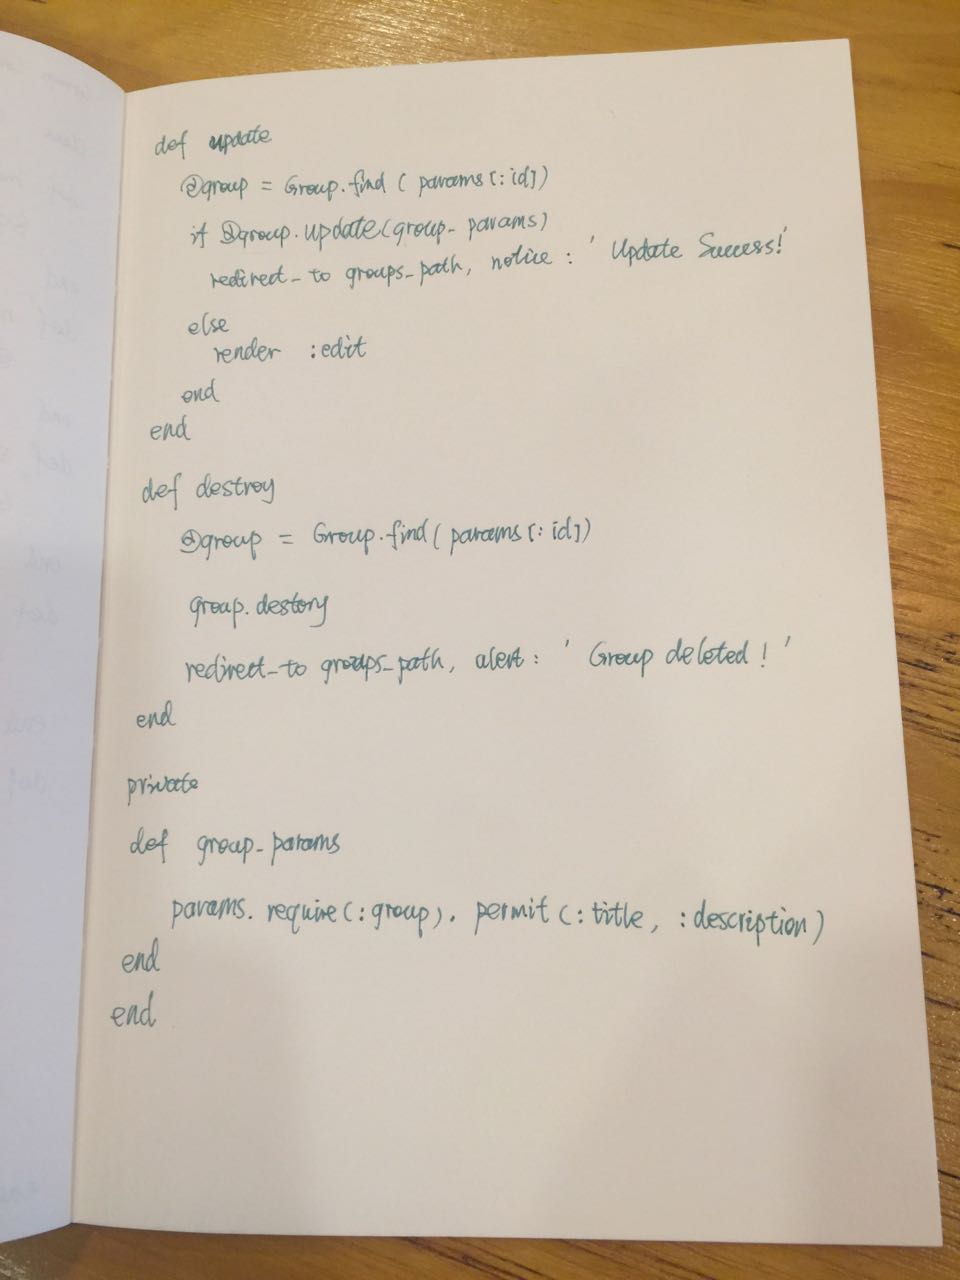 def update
@group = Group.find ( params[:id])
if @group.update(group_params)
redirect_to groups_path, notice : 'Update Success!'
else
render :edit
end
end
def destroy
@group = Group.find( params[:id])
group.destory
redirect_to groups_path, alert : 'Group deleted ! '
end
private
def group_params
params. require(:group). permit (:title, :description)
end
end